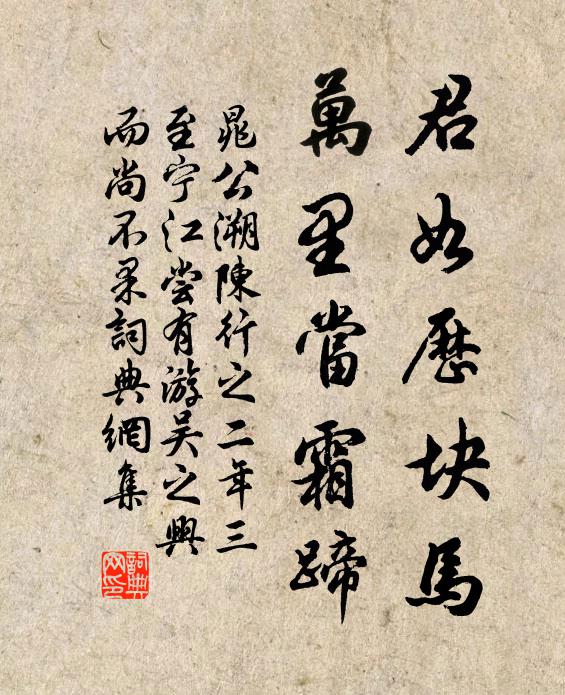 君如歷块馬
萬里當霜蹄
晁公溯陳行之二年三
至宁江尝有游吴之興
而尚不果詞典網集
詞典
网印